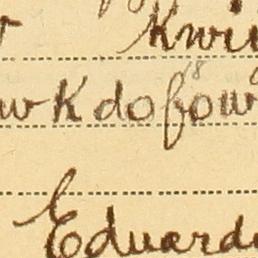 Kwi
wKdofow
Eduard